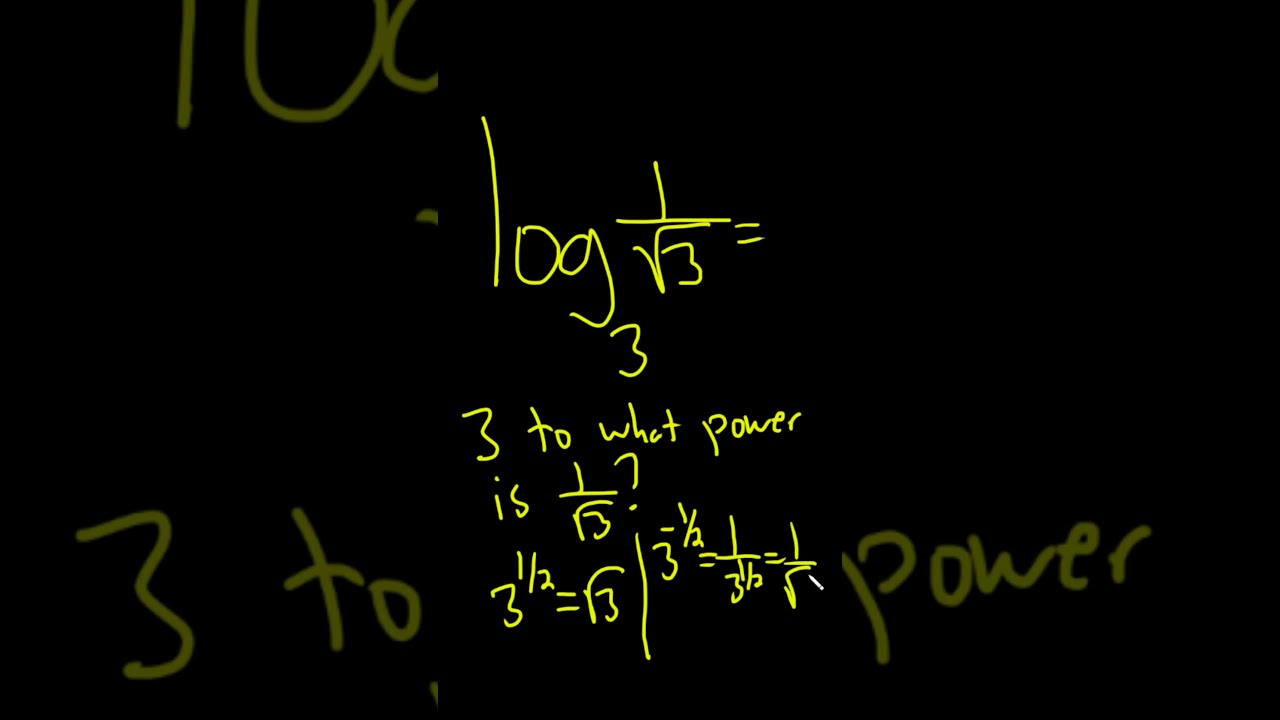 log₃ 1/√3 =
3 to what power
is 1/√3?
3^1/2 = √3 | 3^-1/2 = 1/3^1/2 = 1/√